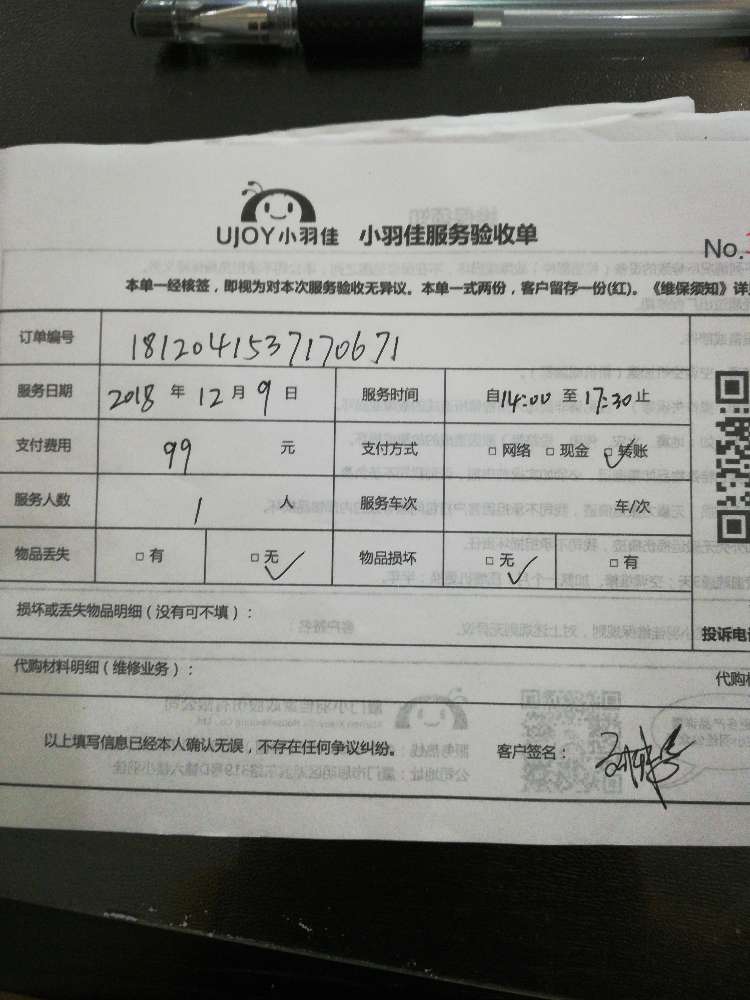 UJOY小羽佳 小羽佳服务验收单
No.
本单一经核签，即视为对本次服务验收无异议。本单一式两份，客户留存一份(红)。《维保须知》详
订单编号 1812041537170671
服务日期 2018 年 12 月 9 日 服务时间 自14:00 至 17:30止
支付费用 99 元 支付方式 □ 网络 □ 现金 ☑ 转账
服务人数 1 人 服务车次 车/次
物品丢失 □ 有 ☑ 无 物品损坏 ☑ 无 □ 有
损坏或丢失物品明细（没有可不填）：
投诉电
代购材料明细（维修业务）：
代购
以上填写信息已经本人确认无误，不存在任何争议纠纷。 客户签名：